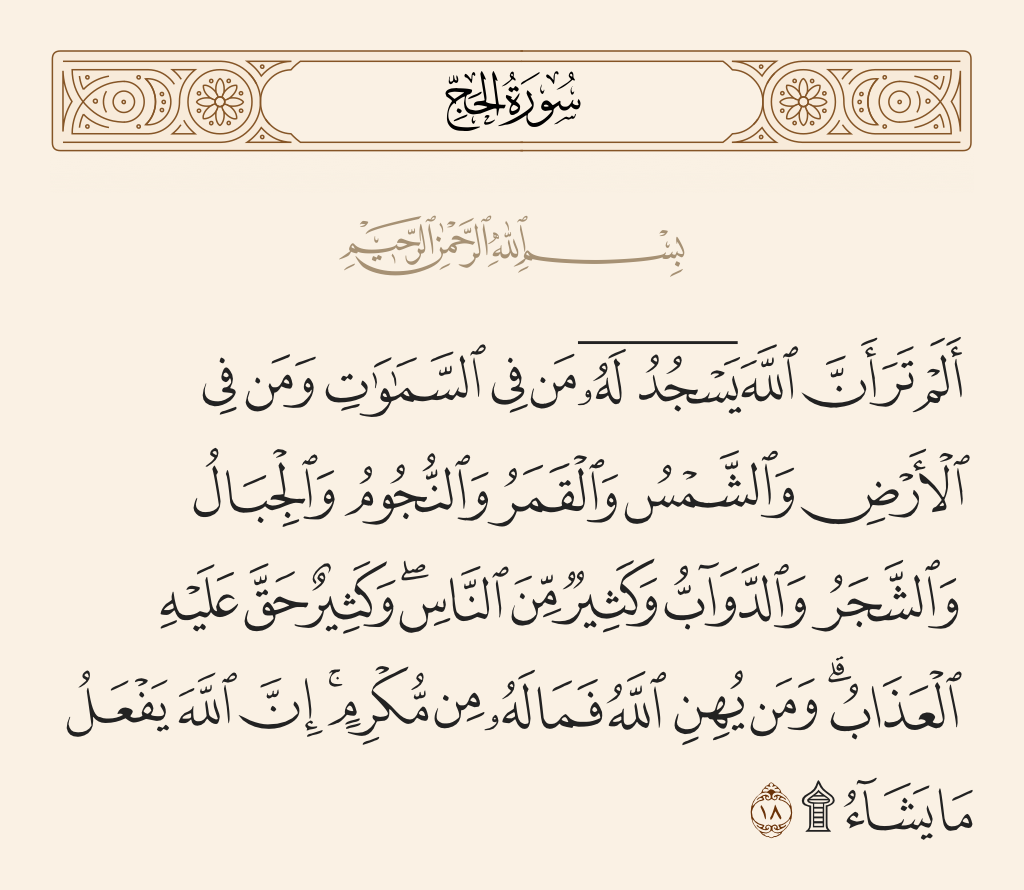 سُورَةُ الحَجِّ
بِسْمِ ٱللَّهِ ٱلرَّحْمَٰنِ ٱلرَّحِيمِ
أَلَمْ تَرَ أَنَّ ٱللَّهَ يَسْجُدُ لَهُۥ مَن فِى ٱلسَّمَٰوَٰتِ وَمَن فِى
ٱلْأَرْضِ وَٱلشَّمْسُ وَٱلْقَمَرُ وَٱلنُّجُومُ وَٱلْجِبَالُ
وَٱلشَّجَرُ وَٱلدَّوَآبُّ وَكَثِيرٌ مِّنَ ٱلنَّاسِ ۖ وَكَثِيرٌ حَقَّ عَلَيْهِ
ٱلْعَذَابُ ۗ وَمَن يُهِنِ ٱللَّهُ فَمَا لَهُۥ مِن مُّكْرِمٍ ۚ إِنَّ ٱللَّهَ يَفْعَلُ
مَا يَشَآءُ ۩ ١٨